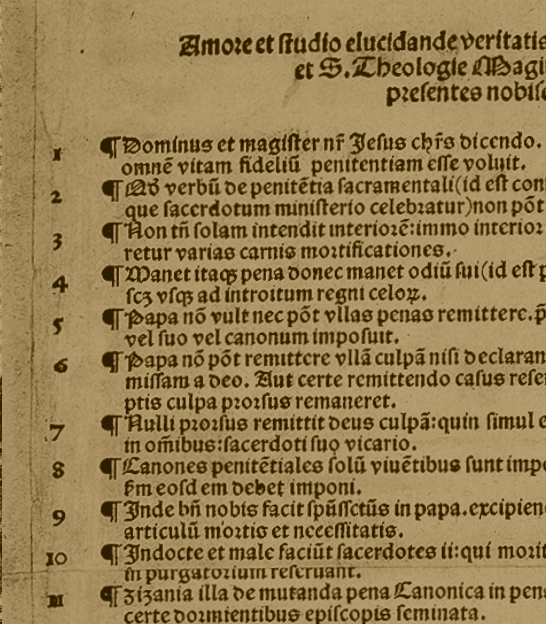 Amore et studio elucidande veritatis
et S. Theologie Magi
presentes nobisc
1 ¶ Dominus et magister nr̄ Jesus chr̄s dicendo.
omnē vitam fideliū penitentiam esse voluit.
2 ¶ Qd̄ verbū de penitētia sacramentali (id est con
que sacerdotum ministerio celebratur) non pōt
3 ¶ Non tn̄ solam intendit interiorē: immo interior
retur varias carnis mortificationes.
4 ¶ Manet itaqꝫ pena donec manet odiū sui (id est p
scꝫ vsqꝫ ad introitum regni celoꝝ.
5 ¶ Papa nō vult nec pōt vllas penas remittere. p̄
vel suo vel canonum imposuit.
6 ¶ Papa nō pōt remittere vllā culpā nisi declaran
missam a deo. Aut certe remittendo casus rese
ptis culpa prorsus remaneret.
7 ¶ Nulli prorsus remittit deus culpā: quin simul e
in om̄ibus: sacerdoti suo vicario.
8 ¶ Canones penitētiales solū viuētibus sunt impo
s̄m eosd em debet imponi.
9 ¶ Inde bn̄ nobis facit spūssctūs in papa. excipien
articulū mortis et necessitatis.
10 ¶ Indocte et male faciūt sacerdotes ii: qui morit
in purgatorium reseruant.
11 ¶ Zizania illa de mutanda pena Canonica in pen
certe dormientibus episcopis seminata.